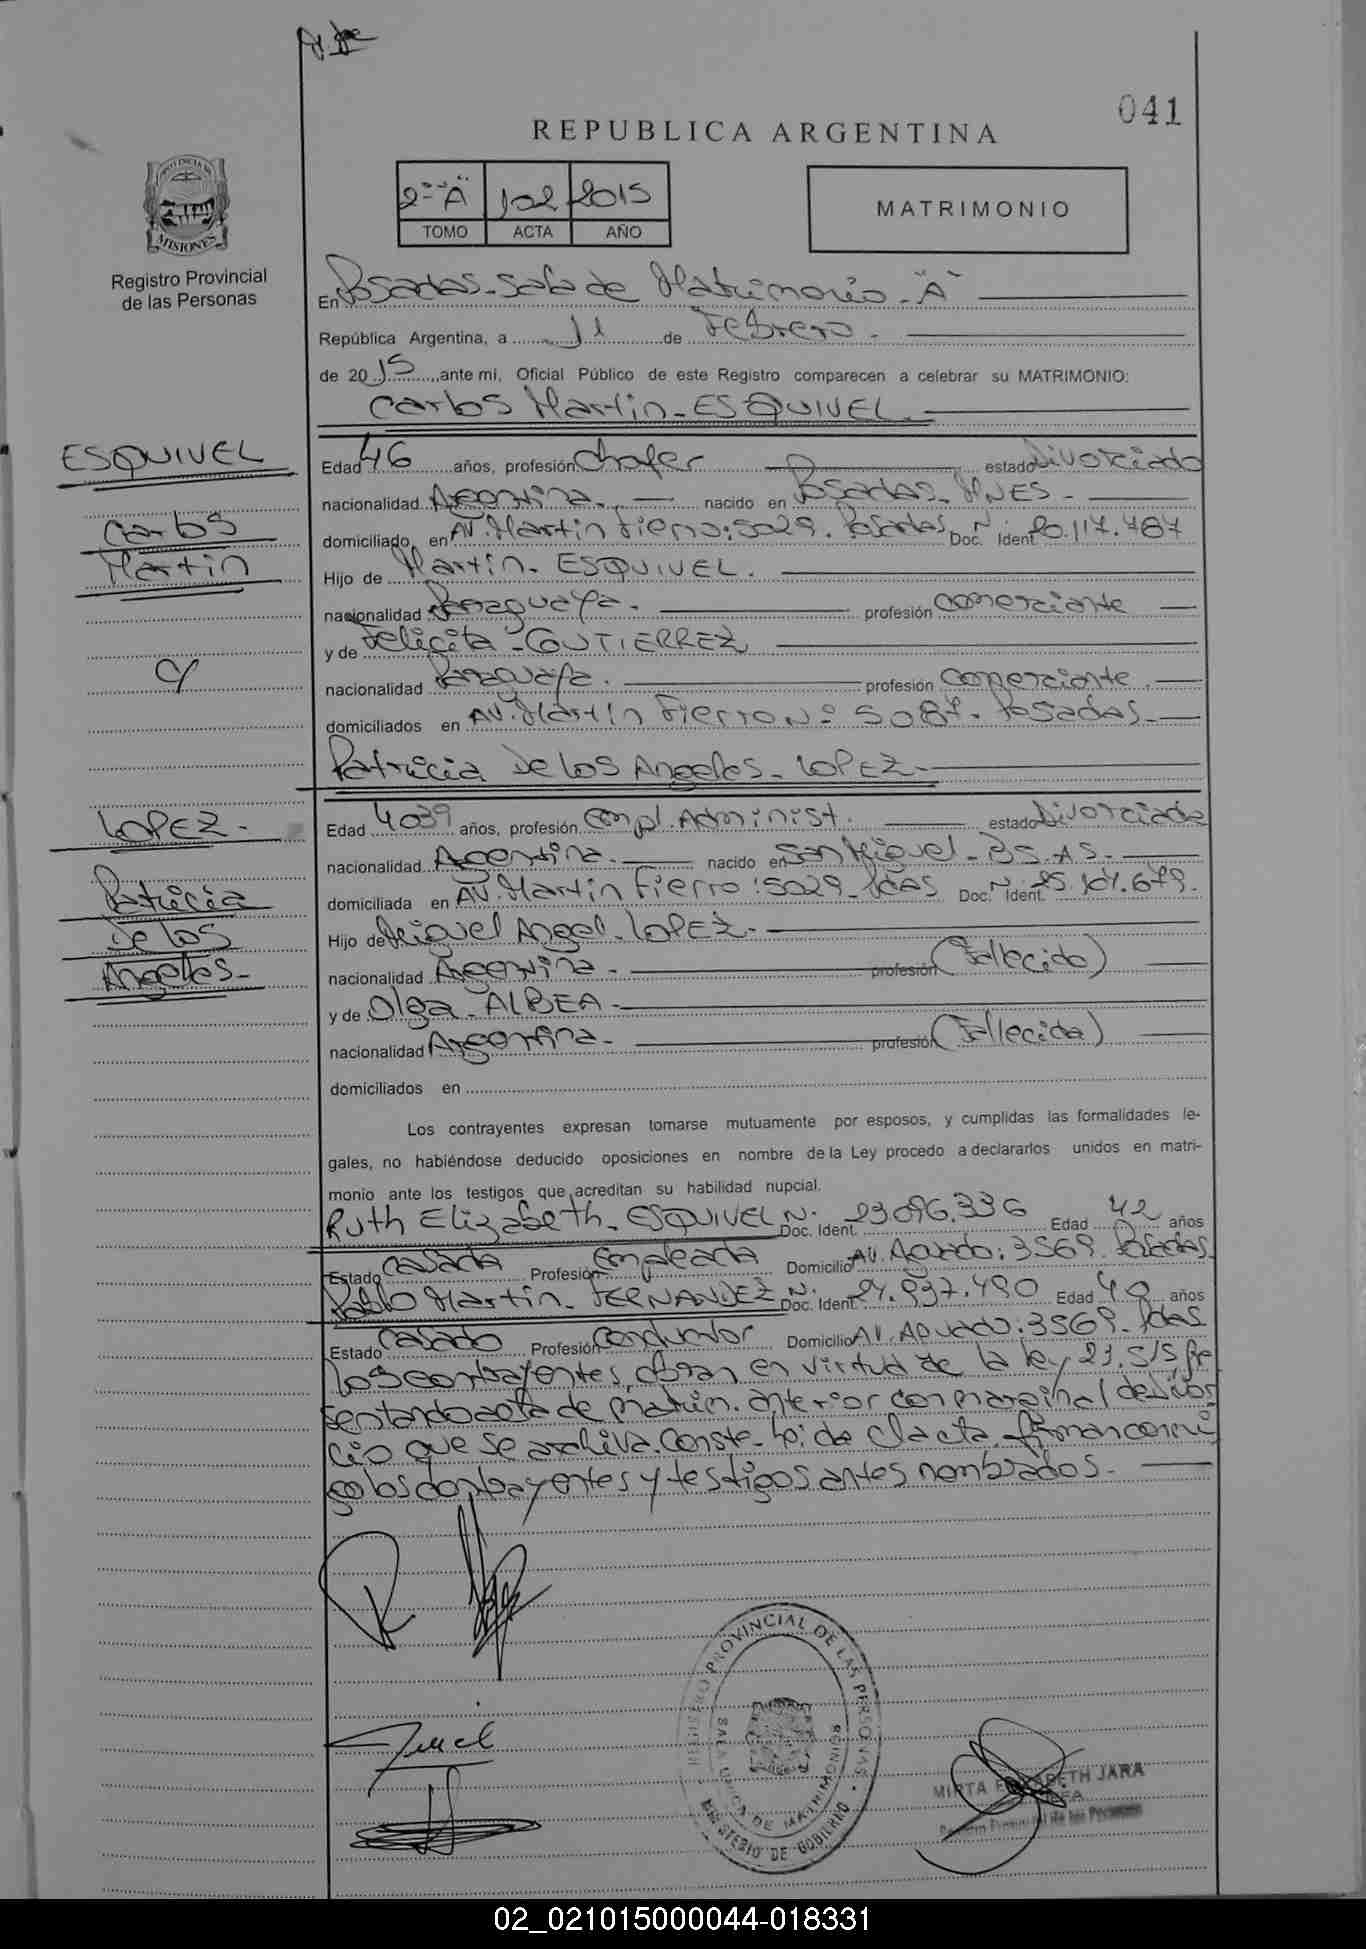 041
REPUBLICA ARGENTINA
PROVINCIA DE
MISIONES
Registro Provincial
de las Personas
2º "A" 102 2015
TOMO ACTA AÑO
MATRIMONIO
En Posadas-Sala de Matrimonio-"A"
República Argentina, a 11 de Febrero.
de 2015, ante mi, Oficial Público de este Registro comparecen a celebrar su MATRIMONIO:
Carlos Martin-ESQUIVEL
ESQUIVEL
Carlos
Martin
c/
LOPEZ-
Patricia
De los
Angeles-
Edad 46 años, profesión chofer estado Divorciado
nacionalidad Argentina. nacido en Posadas-MNES-
domiciliado en AV. Martin Fierro:5029. Posadas Doc. Ident. Nº 20.117.767
Hijo de Martin-ESQUIVEL.
nacionalidad Paraguaya. profesión comerciante
y de Felicita-GUTIERREZ
nacionalidad Paraguaya. profesión comerciante.
domiciliados en AV. Martin Fierro Nº 5087. Posadas-
Patricia De los Angeles-LOPEZ-
Edad 4039 años, profesión Empl. Administ. estado Divorciada
nacionalidad Argentina. nacido en San Miguel-BS.AS-
domiciliada en AV. Martin Fierro:5029-Pdas Doc. Ident. Nº 25.107.679.
Hijo de Miguel Angel-LOPEZ-
nacionalidad Argentina- profesión (Fallecido)
y de Olga-ALBEA-
nacionalidad Argentina- profesión (Fallecida)
domiciliados en
Los contrayentes expresan tomarse mutuamente por esposos, y cumplidas las formalidades le-
gales, no habiéndose deducido oposiciones en nombre de la Ley procedo a declararlos unidos en matri-
monio ante los testigos que acreditan su habilidad nupcial.
Ruth Elizabeth-ESQUIVEL Doc. Ident. Nº 23.096.336 Edad 42 años
Estado casada Profesión empleada Domicilio AV. Aguado:3569. Posadas
Pablo Martin-FERNANDEZ Doc. Ident. Nº 24.937.490 Edad 40 años
Estado casado Profesión conductor Domicilio AV. Aguado:3569-Pdas
los contrayentes obran en virtud de la ley 23.515, pre
sentando acta de matrim. anterior con marginal de divor
cio que se archiva. Conste-leida el acta, firman conmi
go los contrayentes y testigos antes nombrados.-
REGISTRO PROVINCIAL DE LAS PERSONAS
SALA UNICA DE MATRIMONIOS
MINISTERIO DE GOBIERNO
MIRTA ELIZABETH JARA
Registro Provincial de las Personas
02_021015000044-018331